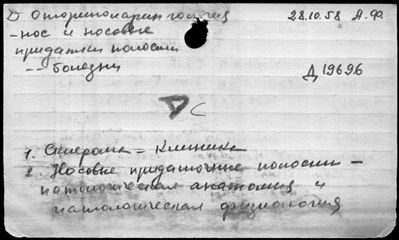 D Оториноларингология 28.10.58 А.Ф.
- нос и носовые
придатки полости
-- болезни
Д 19696
Dс
1. Склерома - клиника
2. Носовые придаточные полости -
патологическая анатомия и
патологическая физиология